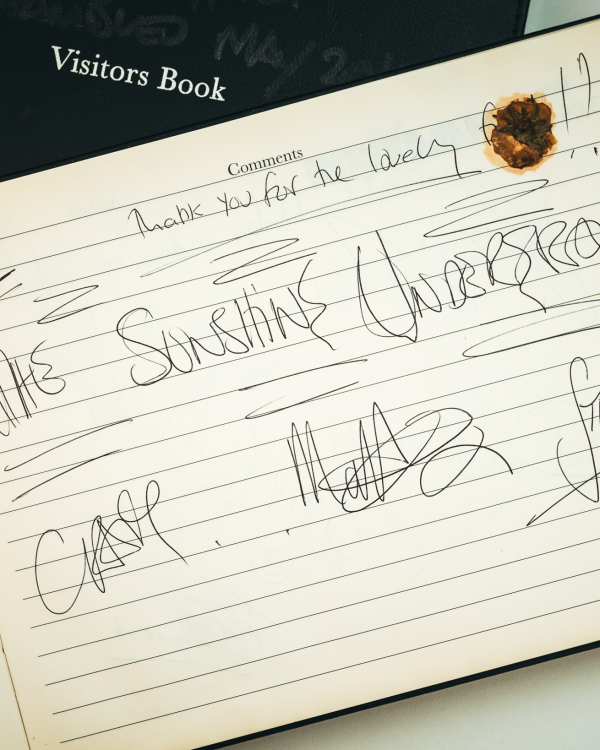 MAY 20
Visitors Book
Comments
Thank you for the lovely !!
THE SUNSHINE UNDERGRO
Matt